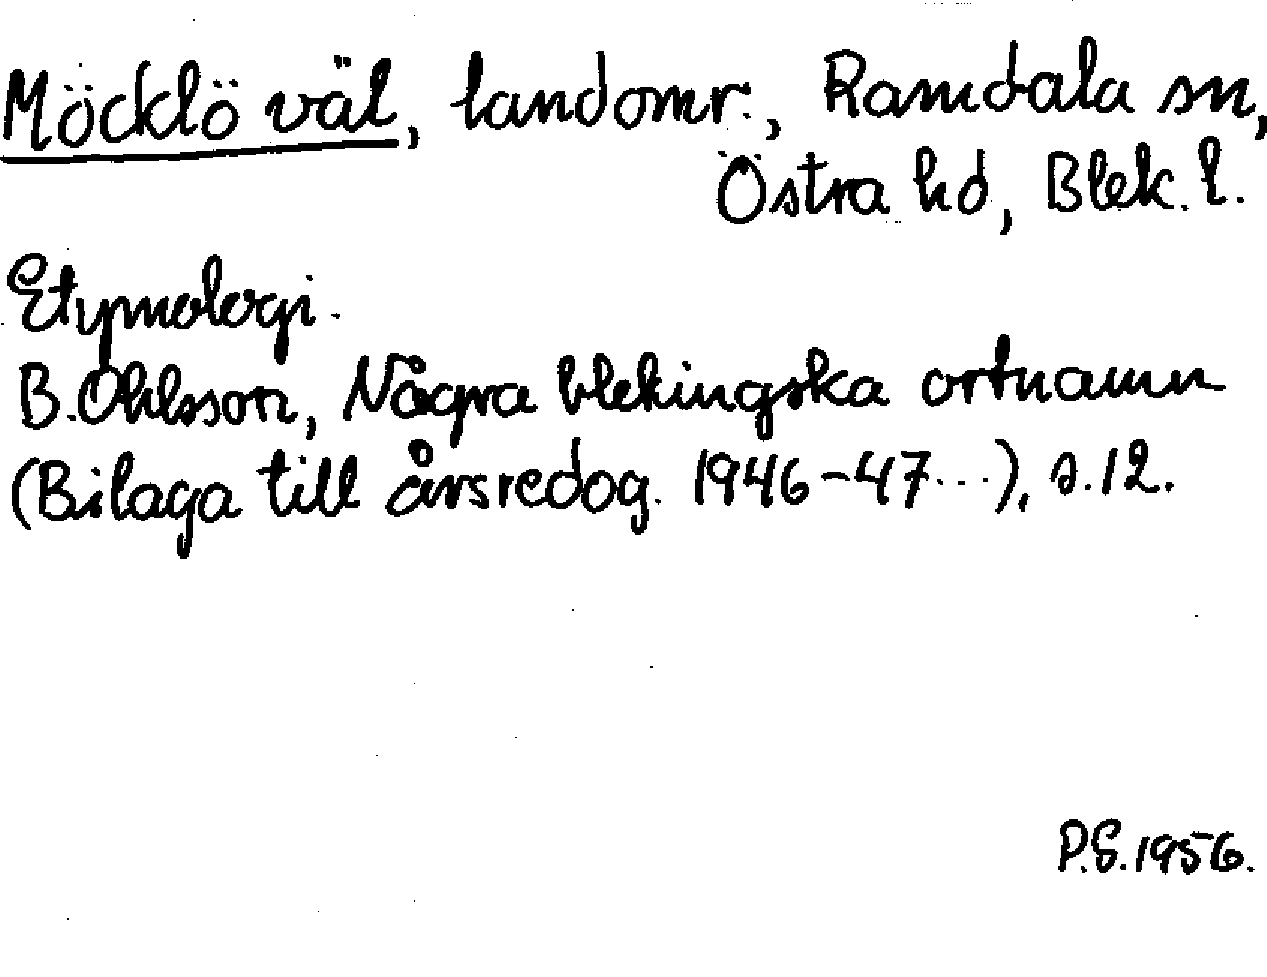 Möcklö väl, landomr., Ramdala sn,
Östra hd, Blek. l.
Etymologi.
B. Ohlsson, Några blekingska ortnamn
(Bilaga till årsredog. 1946-47...), s. 12.
P.S. 1956.